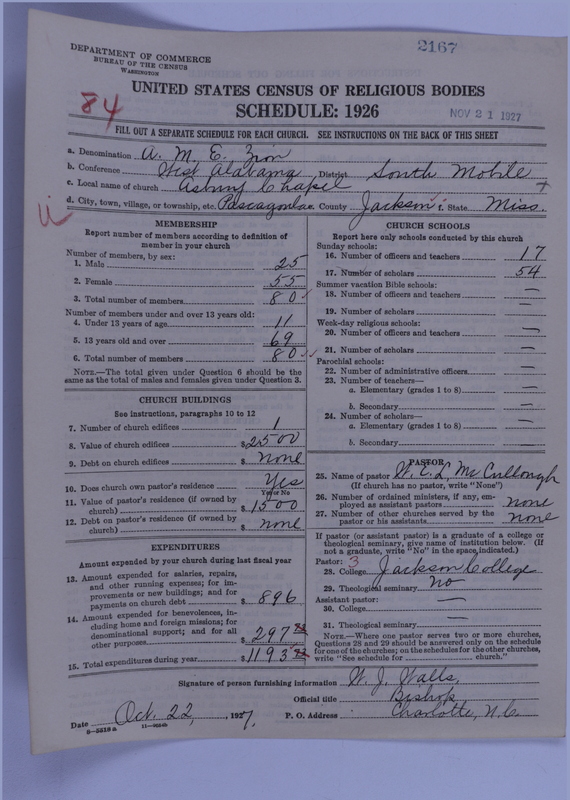 2167
DEPARTMENT OF COMMERCE
BUREAU OF THE CENSUS
WASHINGTON
UNITED STATES CENSUS OF RELIGIOUS BODIES
84
SCHEDULE: 1926
NOV 21 1927
FILL OUT A SEPARATE SCHEDULE FOR EACH CHURCH. SEE INSTRUCTIONS ON THE BACK OF THIS SHEET
a. Denomination A. M. E. Zion
b. Conference West Alabama District South Mobile
c. Local name of church Asbury Chapel
d. City, town, village, or township, etc. Pascagoula e. County Jackson f. State Miss.
MEMBERSHIP
Report number of members according to definition of
member in your church
Number of members, by sex:
1. Male 25
2. Female 55
3. Total number of members 80
Number of members under and over 13 years old:
4. Under 13 years of age 11
5. 13 years old and over 69
6. Total number of members 80
NOTE.—The total given under Question 6 should be
same as the total of males and females given under Question 3.
CHURCH BUILDINGS
See instructions, paragraphs 10 to 12
7. Number of church edifices 1
8. Value of church edifices $2500
9. Debt on church edifices $ none
10. Does church own pastor's residence Yes
Yes or No
11. Value of pastor's residence (if owned by
church) $ 1500
12. Debt on pastor's residence (if owned by
church) $ none
EXPENDITURES
Amount expended by your church during last fiscal year
13. Amount expended for salaries, repairs,
and other running expenses; for im-
provements or new buildings; and for
payments on church debt $ 896
14. Amount expended for benevolences, in-
cluding home and foreign missions; for
denominational support; and for all
other purposes $ 297
15. Total expenditures during year $ 1193
CHURCH SCHOOLS
Report here only schools conducted by this church
Sunday schools:
16. Number of officers and teachers 17
17. Number of scholars 54
Summer vacation Bible schools:
18. Number of officers and teachers —
19. Number of scholars —
Week-day religious schools:
20. Number of officers and teachers —
21. Number of scholars —
Parochial schools:
22. Number of administrative officers —
23. Number of teachers—
a. Elementary (grades 1 to 8) —
b. Secondary —
24. Number of scholars—
a. Elementary (grades 1 to 8) —
b. Secondary —
PASTOR
25. Name of pastor W. E. L. McCullough
(If church has no pastor, write "None")
26. Number of ordained ministers, if any, em-
ployed as assistant pastors none
27. Number of other churches served by the
pastor or his assistants none
If pastor (or assistant pastor) is a graduate of a college or
theological seminary, give name of institution below. (If
not a graduate, write "No" in the space indicated.)
Pastor: 3
28. College Jackson College
29. Theological seminary No
Assistant pastor:
30. College —
31. Theological seminary —
NOTE.—Where one pastor serves two or more churches,
Questions 28 and 29 should be answered only on the schedule
for one of the churches; on the schedules for the other churches,
write "See schedule for church."
Signature of person furnishing information W. J. Walls,
Official title Bishop
Date Oct. 22, 1927. P. O. Address Charlotte, N.C.